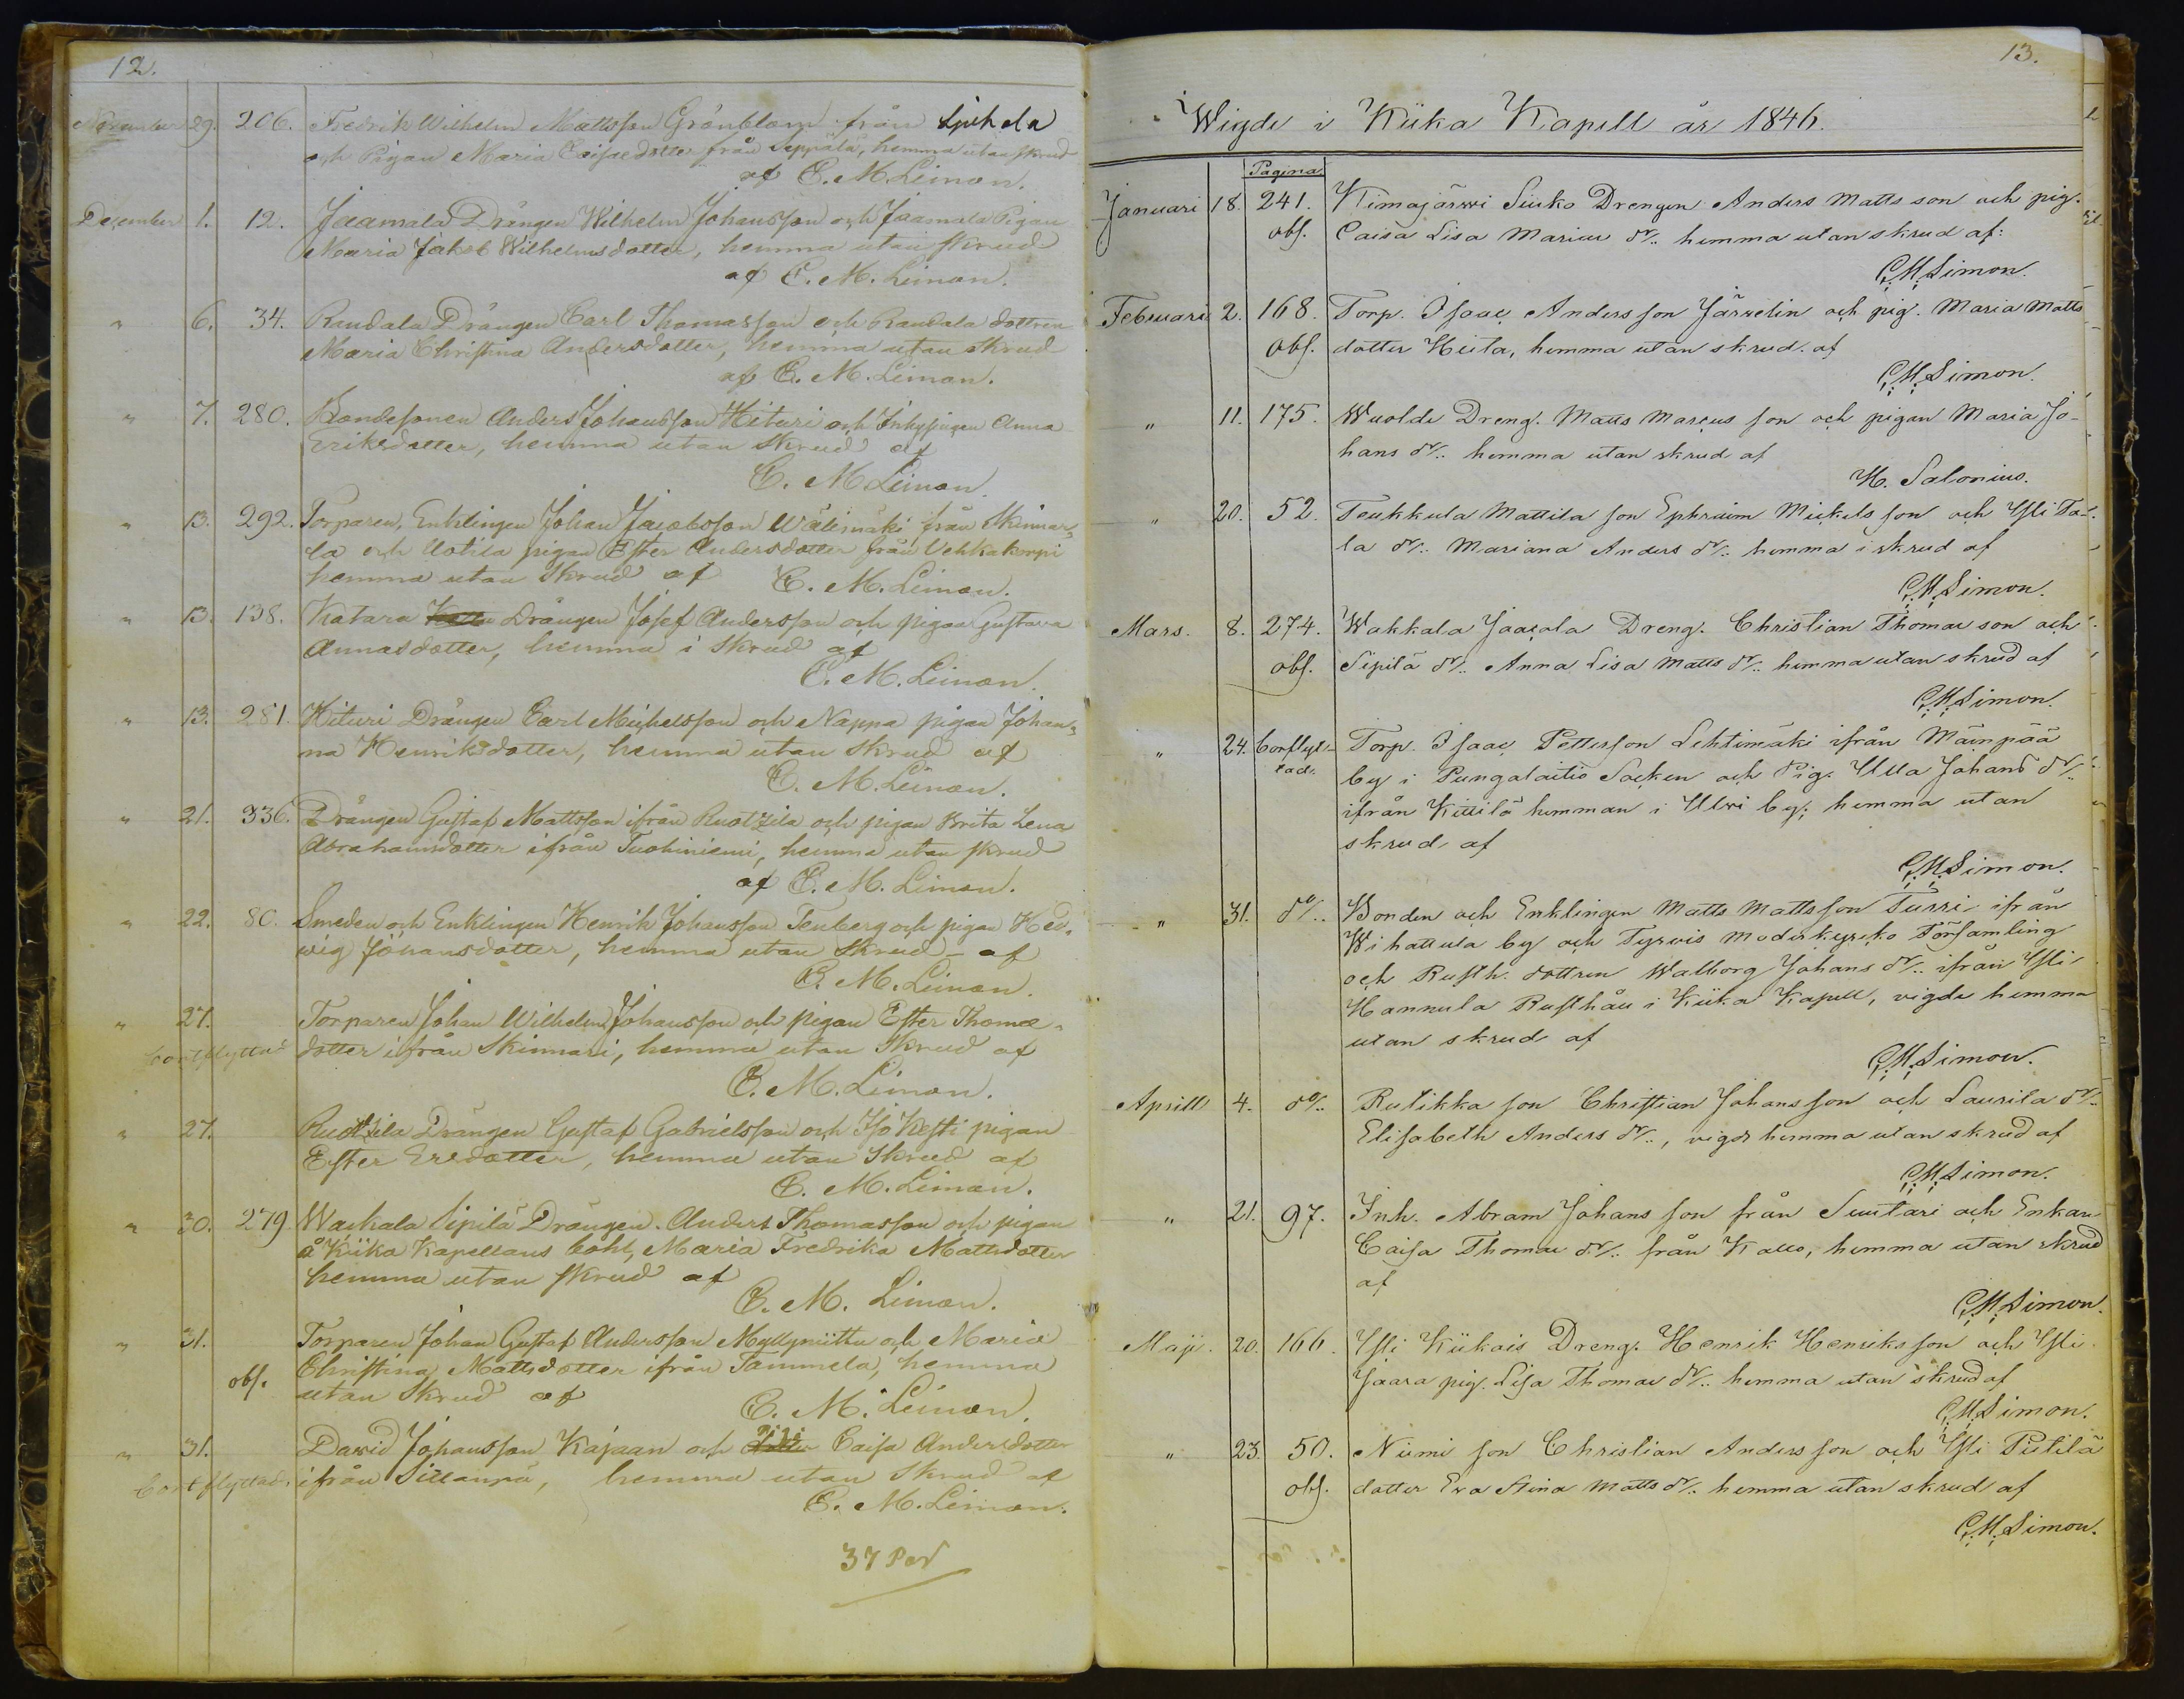 12.
November 29. 206. Fredrik Wilhelm Mattsson Grönblom från
och Pigan Maria Caisædotter från Seppälä, hemma utan skrud
af C. M. Limon.
December 1. 12. Jaamala Drängen Wilhelm Johansson och Jaamala Pigan
Maria Jakob Wilhelmsdotter, hemma utan skrud
af C. M. Limon.
" 6. 34. Raudala Drängen Carl Thomasson och Raudala dottren
Maria Christina Andersdotter, hemma utan skrud
af C. M. Limon.
" 7. 280. Bondesonen Anders Johansson Hituri och Inhypigen Anna
Eriksdotter, hemma utan skrud af
C. M. Limon.
" 13. 292. Torparen, Enklingen Johan Jacobsson Wälimäki från Skinnar„
la och Uotila pigan Ester Andersdotter från Vehkakorpi
hemma utan skrud af C. M. Limon.
" 13. 138. Katara Drängen Josef Andersson och pigan Gustava
Annasdotter, hemma i skrud af
C. M. Limon.
" 13. 281. Hituri Drängen Carl Michelsson och Nappa pigan Johan„
na Henriksdotter, hemma utan skrud af
C. M. Limon.
" 21. 336. Drängen Gustaf Mattsson ifrån Ruotzila och pigan Brita Lena
Abrahamsdotter ifrån Tuohiniemi, hemma utan skrud
af C. M. Limon.
" 22. 80. Smeden och Enklingen Henrik Johansson Tenberg och pigan Hed„
wig Johansdotter, hemma utan skrud af
C. M. Limon.
" 27. Torparen Johan Wilhelm Johansson och pigan Ester Thomæ„
bortflyttad dotter ifrån Skinnari, hemma utan skrud af
C. M. Limon.
" 27. Ruotzila Drängen Gustaf Gabrielsson och Iso Kesti pigan
Ester Ersdotter, hemma utan skrud af
C. M. Limon.
" 30. 279. Wackala Sipilä Drängen Anders Thomasson och pigan
å Kiika Kapellans bohl, Maria Fredrika Mattsdotter
hemma utan skrud af
C. M. Limon.
" 31. Torparen Johan Gustaf Andersson Myllyniittu och Maria
obs. Christina Mattsdotter ifrån Tammela, hemma
utan skrud af C. M. Limon.
" 31. David Johansson Kajaan och Caisa Andersdotter
bortflyttad. ifrån Sillanpä, hemma utan skrud af
C. M. Limon.
37 Par
13.
Wigde i Kiika Kapell år 1846.
Pagina
Januari 18. 241. Kimajärwi Siuko Drengen Anders Matts son och pig.
obs. Caisa Lisa Mariæ dr/.. hemma utan skrud af:
C. M. Limon.
Februari 2. 168. Torp. Isaac Anders son Järvelin och pig. Maria Matts
obs. dotter Hiila, hemma utan skrud af
C. M. Limon.
" 11. 175. Wuolde Dreng. Matts Marcus son och pigan Maria Jo-
hans dr/.. hemma utan skrud af
H. Salonius.
" 20. 52. Teukkula Mattila son Ephraim Mickels son och Ylli Ta-
la dr/.. Mariana Anders dr/.. hemma i skrud af
C. M. Limon.
Mars. 8. 274. Wakkala Jaacola Dreng. Christian Thomæ son och
obs. Sipilä dr/.. Anna Lisa Matts dr/.. hemma utan skrud af
C. M. Limon.
" 24. bortflyt- Torp. Isaac Petterson Lehtimäki ifrån Mäinpää
tade. by i Pungalaitio Socken och Pig. Ulla Johans dr/..
ifrån Kittilä hemman i Ulvi by; hemma utan
skrud af
C. M. Limon.
" 31. do/.. Bonden och Enklingen Matts Mattsson Turri ifrån
Wihattula by och Tyrvis moderkyrko Församling
och Rusth. dottren Walborg Johans dr/.. ifrån Ylli
Hannula Rusthåll i Kiika Kapell, vigde hemma
utan skrud af
C. M. Limon.
Aprill 4. do/.. Rutikka son Christian Johans son och Laurila dr/..
Elisabeth Anders dr/.., vigd hemma utan skrud af
C. M. Limon.
" 21. 97. Inh. Abram Johans son från Suutari och Enkan
Caisa Thomæ dr/.. från Kallo, hemma utan skrud
af
C. M. Limon.
Maji. 20. 166. Ylli Kiikois Dreng. Henrik Henriksson och Ylli
Jaara pig. Lisa Thomæ dr/.. hemma utan skrud af
C. M. Limon.
" 23. 50. Niemi son Christian Anders son och Ylli Pietilä
obs. dotter Eva Stina Matts dr/. hemma utan skrud af
C. M. Limon.